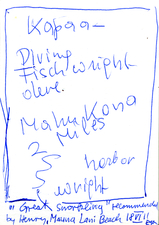 Kapaa—
Diving
Fisch wright
Kona
Miles
2
harbor
wright
"Great snorkling" recommended
by Henry, Mauna Lani Beach